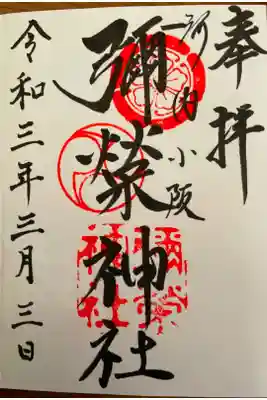 奉拝
河内小阪
彌榮神社
令和三年三月三日